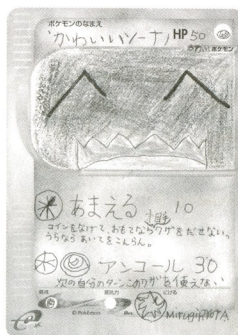 ポケモンのなまえ
かわいいソーナノ HP 50
あまえる 10
コインをなげて、おもてならワザをだせない。
うらなら あいてをこんらん。
アンコール 30
次の自分のターンこのワザを使えない
弱点 抵抗力 にげる
© Pokémon